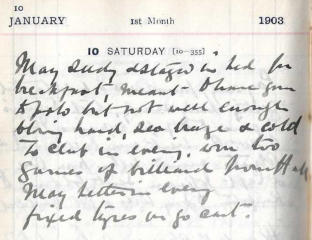 10
JANUARY 1st Month 1903
10 SATURDAY [10-355]
May seedy & stayed in bed for
breakfast, meant to have gone
to polo but not well enough
blowing hard, sea haze & cold
To club in eveng, won two
games of billiard from
May better in eveng
fixed tyres on go cart.